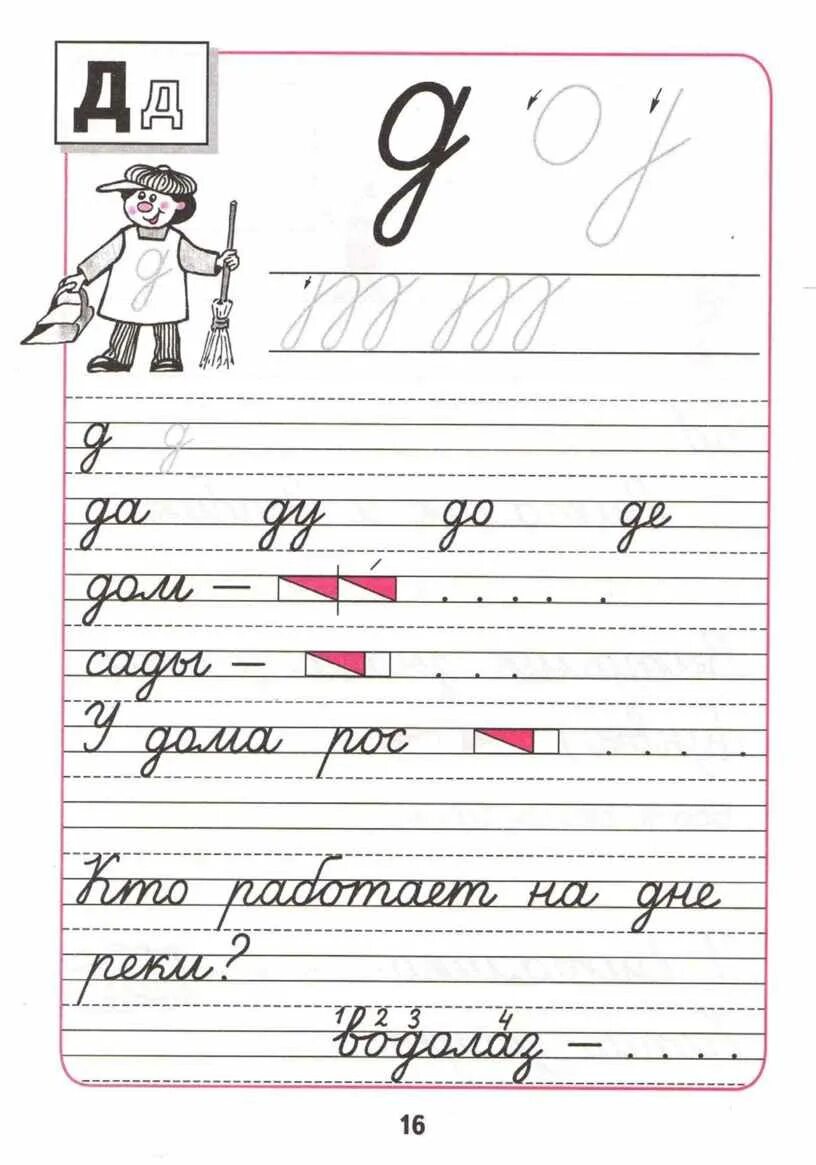 Д д
д о
д
д д
да ду до де
дом — . . . . .
сады — . . .
У дома рос . . . .
Кто работает на дне
реки?
1 2 3 4
водолаз — . . . .
16